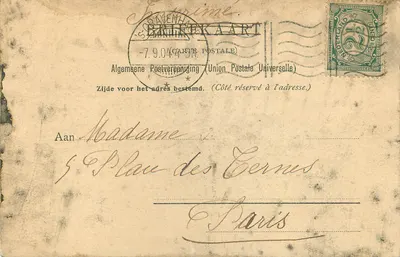 Imprimé
BRIEFKAART
'S GRAVENHAGE
(CARTE POSTALE)
-7.9.04
Algemeene Postvereeniging (Union Postale Universelle)
Zijde voor het adres bestemd. (Côté réservé à l'adresse.)
Aan Madame
5 Place des Ternes
Paris